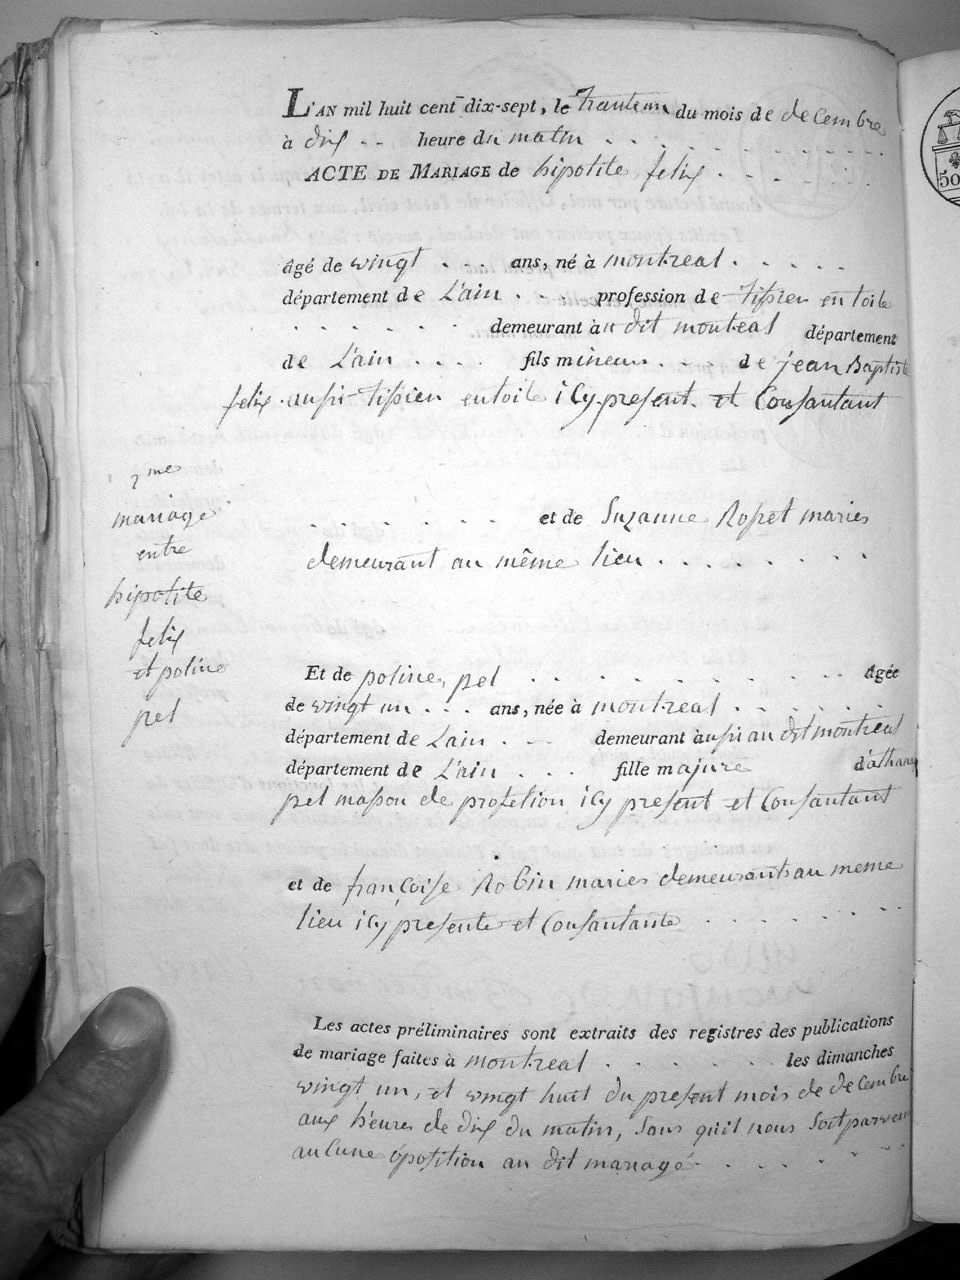 L'AN mil huit cent dix-sept, le tranteun du mois de decembre
à dix .. heure du matin
ACTE DE MARIAGE de hipolite felix
âgé de wingt ... ans, né à montreal
département de L'ain .. profession de tissier en toile
demeurant au dit montreal département
de L'ain .... fils mineur .... de jean Baptiste
felix aussi tissier en toile icy present et Consantant
2me
mariage
entre
hipolite
felix
et poline
pel
et de Suzanne Rosset mariés
demeurant au même lieu
Et de poline pel âgée
de wingt un ... ans, née à montreal
département de L'ain ... demeurant aussi au dit montreal
département de L'ain ... fille majure d'athana
pel masson de profetion icy present et Consantant
et de françoise Robin mariés demeurant au meme
lieu icy presente et Consantante
Les actes préliminaires sont extraits des registres des publications
de mariage faites à montreal les dimanches
wingt un, et wingt huit du present mois de decembre
aux heures de dix du matin, sans qu'il nous soit parvenu
aucune opotition au dit mariage
50